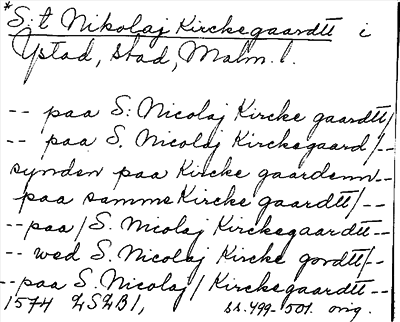 *S:t Nikolaj Kirckegaardtt i
Ystad, stad, Malm. l.
-- paa S: Nicolaj Kircke gaardtt/
-- paa S. Nicolaj Kirckegaard/--
synden paa Kircke gaardenn--
paa samme Kircke gaardtt/--
--paa/S. Nicolaj Kirckegaardtt--
-- wed S. Nicolaj Kircke gordtt/--
--paa S. Nicolaj/Kirckegaardtt--
1574 LSLB1, ss. 499-501. orig.